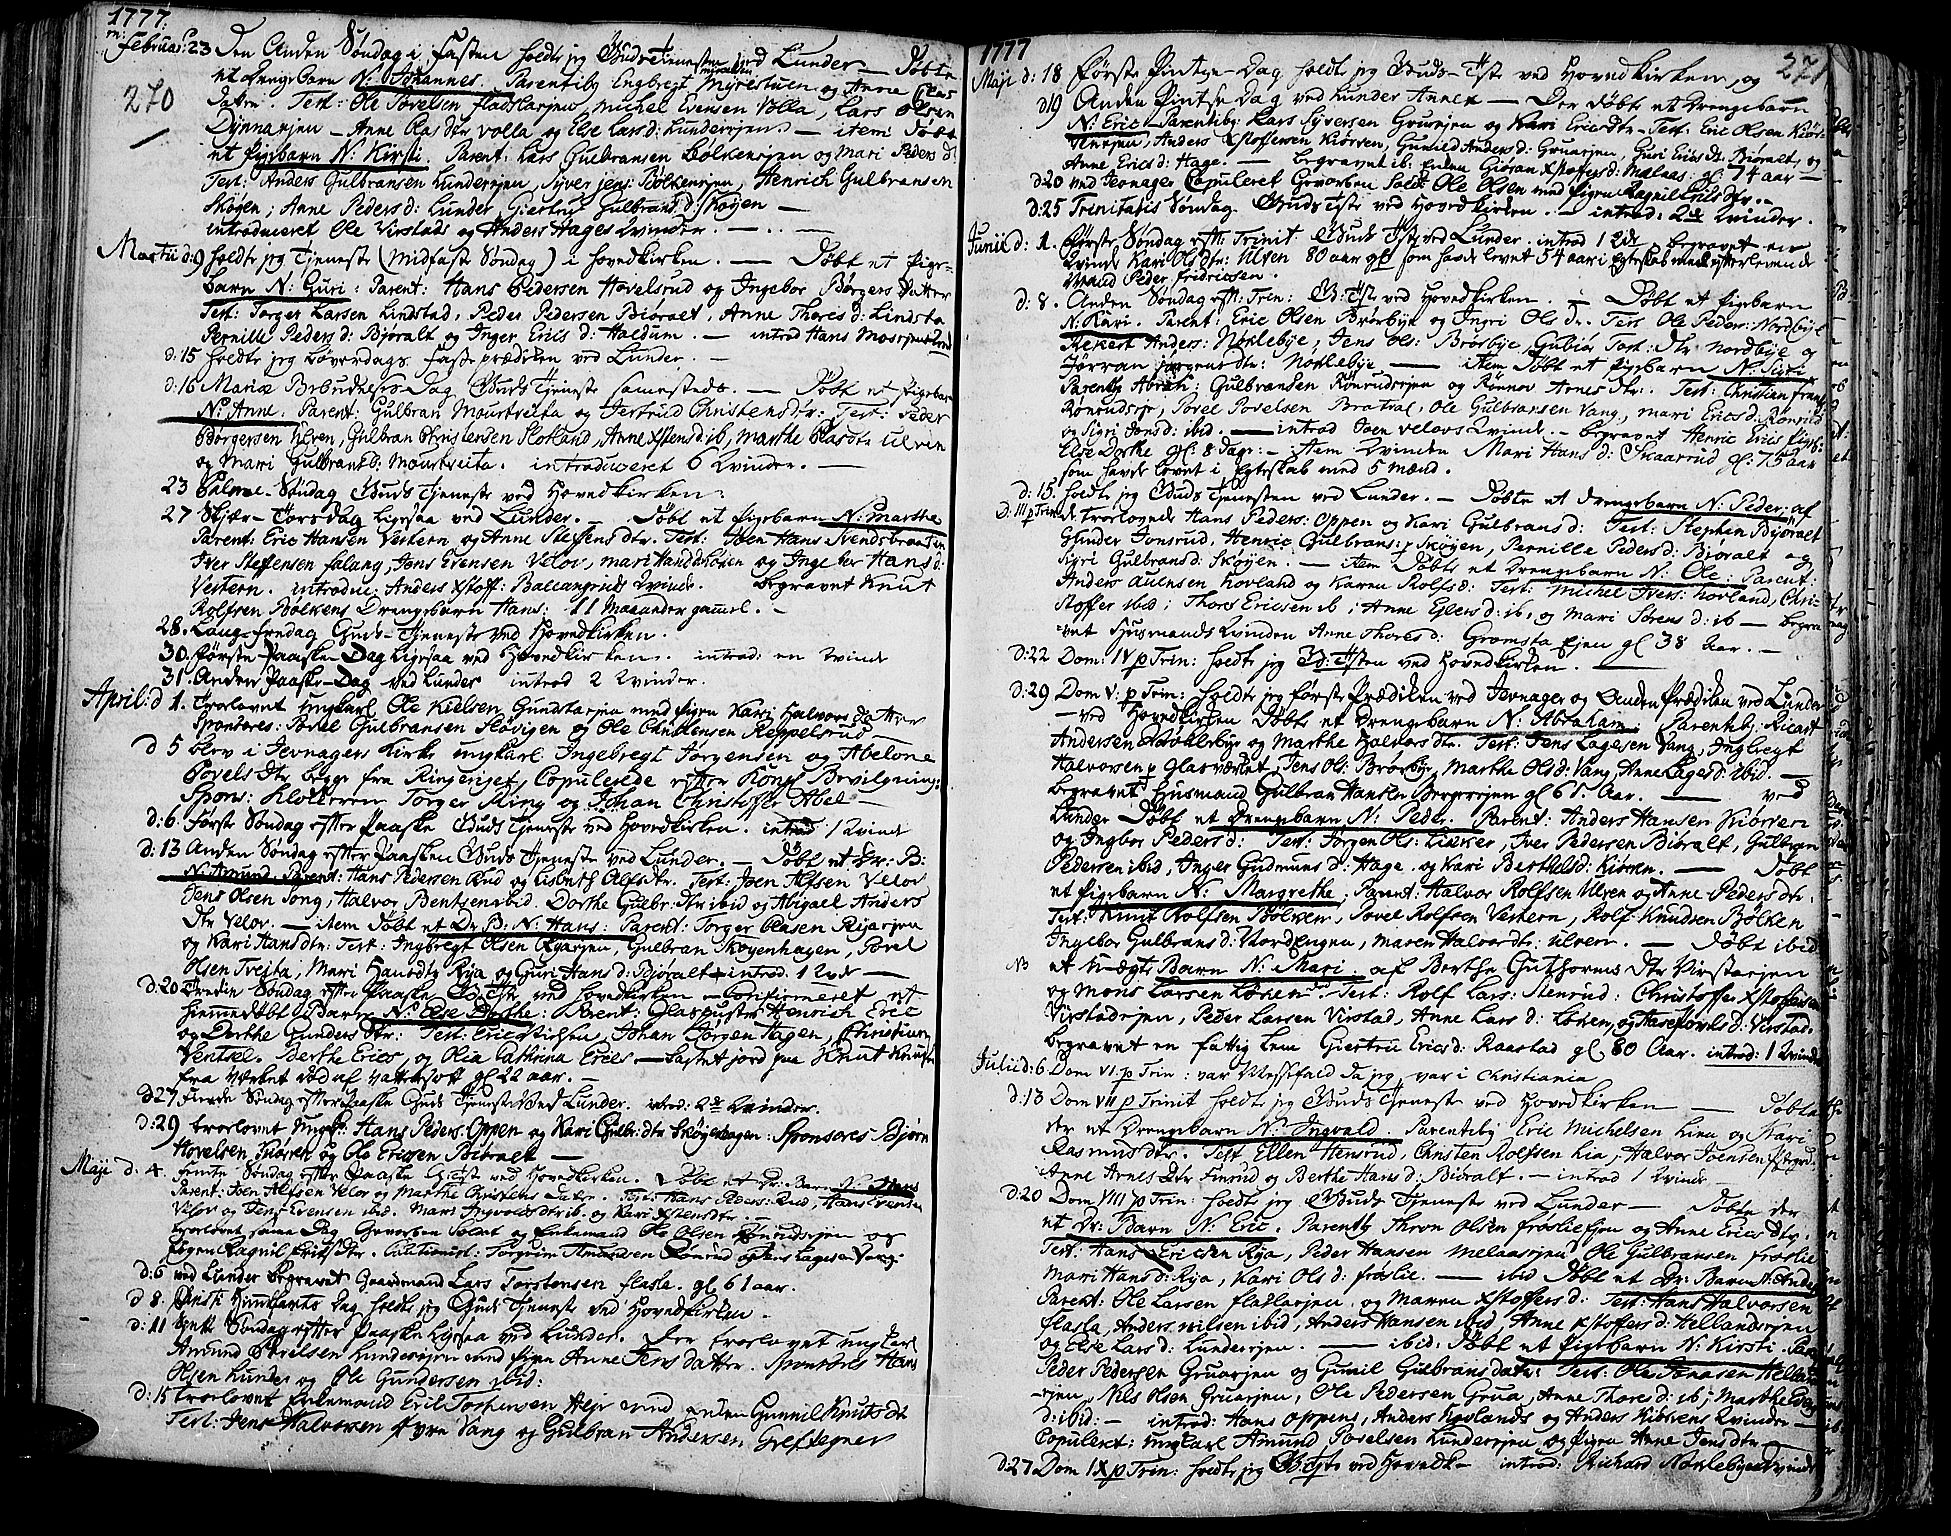 1777.
Februar: 23 Den Anden Søndag i Fasten holdt jeg Guds Tjenesten ved Lunder — Døbte
270
et Drengebarn N: Johannes. Parentib: Engbregt Myrestuen og Anne Claes
Datter. Test: Ole Povelsen fladslaejen, Michel Evensen Volla, Lars Olsen
Dynnaejen — Anne Clas dtr Volla og Else Lars d: Lunderejen. — item Døbt
et Pigebarn N: Kirsti. Parent: Lars Gulbransen Bølkenejen og Mari Peders d:
Test: Anders Gulbransen Lunderejen, Syver jens: Bølkenejen, Henrich Gulbransen
Skøyen; Anne Peders d: Lunder Giertrud Gulbrans d: Skøyen —
introduceret Ole Virstads og Anders Hages Qvinder. —
Martii d: 9 holdte jeg Tjeneste (Midfaste Søndag) i Hovedkirken. — Døbt et Pige-
barn N: Guri: Parent: Hans Pedersen Hovelsrud og Ingebor Børgers datter
Test: Torger Larsen Lindstad, Peder Pedersen Bjøralt, Anne Thores d: Lindsta
Pernille Peders d: Bjøralt og Inger Erics d: Haldum. — introd Hans
d: 15 holdte jeg Løverdags Faste prædiken ved Lunder. —
d: 16 Mariæ Bebudelses-Dag Guds Tjeneste sammesteds. — Døbt et Pigebarn
N: Anne. Parent: Gulbran Mourtveita og Jertrud Christens dtr: Test: Peder
Børgersen Ulven, Gulbran Christensen Slotland, Anne Xstens d ib, Marthe Clas dtr Ulven
og Mari Gulbrans d: Mourtveita. introduceret 6 Qvinder. —
23 Palme-Søndag Guds Tjeneste ved Hovedkirken:
27 Skjær-Torsdag ligesaa ved Lunder. — Døbt et Pigebarn N: Marthe
Parent: Eric Hansen Vestern og Anne Steffens dtr. Test: Joen Hans: Svendsbraaten
Iver Steffensen Falang, Jens Evensen Velov, Mari og Ingeber Hans d:
Vestern. introdu: Anders Xstoff: Ballangruds Qvinde. Begravet Knut
Rolfsen Bølkens Drengebarn Hans: 11 Maaneder gammel. —
28. Lang-fredag Guds-Tjeneste ved Hovedkirken.
30 Første Paaske-Dag ligesaa ved Hovedkirken. introd: en Qvinde
31 Anden Paaske-Dag ved Lunder introd 2 Qvinder.
April: d 1. Trolovet ungkarl Ole Kielsen Gundstaejen med Pigen Kari Halvors Datter
Sponsores: Povel Gulbransen Sløvigen og Ole Christensen Reppelsrud —
d 5 blev i Jevnager Kirke ungkarl Ingebregt Jørgensen og Abelone
Povels dtr begge fra Ringeriget, Copulerede efter Kongl Bevilgning:
Spons: Klokkeren Torger Ring og Johan Christoffer Abel —
d: 6. Første Søndag efter Paaske Guds Tjeneste ved Hovedkirken. introd 1 Qvinde
d: 13 Anden Søndag efter Paasken Guds Tjeneste ved Lunder. — Døbt et Dr: B:
N: Amund Parent: Hans Pedersen Rud og Lisbeth Alfs dtr. Test: Joen Alfsen Velov
Jens Olsen Tong, Halvor Bentsen ibid. Dorthe Gulbr: dtr ibid og Abigael Anders
dtr Velov. — item Døbt et Dr: B: N: Hans: Parent: Torger Clasen Ryaejen
og Kari Hans dtr: Test: Ingbregt Olsen Ryaejen, Gulbran Skøyenhagen, Povel
Olsen Tveita, Mari Hans dtr Rya og Guri Hans d: Bjøralt introd. 1 Qvde —
d: 20 Tredie Søndag efter Paaske G Tste ved Hovedkirken — Confirmeret et
hjemmedøbt Barn N: Else Dorthe: Parent: Glaspuster Henrich Eric
og Dorthe Gunders dtr: Test: Eric Nielsen, Johan Jørgen Hagen, Christian
Ventsel. Berthe Erics, og Olia Cathrina Erics — Kastet jord paa Knut Knutsen
fra Værket død af Vattersott gl 22 aar. —
d 27 Fierde Søndag efter Paaske Guds Tjeneste ved Lunder. introd: 2de Qvinder.
d: 29 trolovet ungk: Hans Peders: Oppen og Kari Gulbr: dtr Skøyenhagen: Sponsores Bjørn
Hovelsen Kiørven og Ole Ericsen Bjøralt —
Maji d: 4. Femte Søndag efter Paaske G: Tjest ved Hovedkirken. Døbt et Dr: Barn N: Hans
Parent: Joen Alfsen Velov og Marthe Christens Datter. Test: Hans Peders: Rud, Hans Evensen
Velov og Jens Evensen ibid. Mari Ingvolds dtr ib. og Kari Xstens dtr —
trolovet samme Dag Gevorben Soldat og Enkemand Ole Olsen Rønrudsejen og
Pigen Ragnil Erics dtr. Cautionist: Torgrim Amundsen Rønrud og Jens Lagesen Vang.
d: 6 ved Lunder begravet Gaardmand Lars Torstensen flasla. gl 61 aar.
d 8. Christi Himmelfarts Dag holdt jeg Guds Tjeneste ved Hovedkirken.
d: 11 Siette Søndag efter Paaske ligesaa ved Lunder. Der trolovet ungkarl
Amund Povelsen Lunderejen med Pigen Anne Jens datter. Sponsores Hans
Olsen Lunder og Ole Gundersen ibid:
d: 15 trolovet Enkemand Eric Torstensen Heje med enken Gunnil Knuts dt
Test: Jens Halvorsen øvre Vang og Gulbran Andersen Grefsegner
1777
271
Maji d: 18 Første Pintse-Dag holdt jeg Guds-Tste ved Hovedkirken og
d 19 Anden Pintse Dag ved Lunder Annex — Der døbt et Drengebarn
N: Eric Parentib: Lars Syversen Gruaejen og Kari Erics dtr — Test: Eric Olsen Kiør-
venejen, Anders Xstoffersen Kiørven, Gunild Anders d: Gruaejen, Guri Erics dtr Bjøralt og
Anne Erics d: Hage. — Begravet ib: Enken Gioran Xstoffers d: Melaas: gl 74 aar —
d: 20 ved Jevnager Copuleret Gevorben Soldt Ole Olsen med Pigen Ragnil Erics dtr. —
d: 25 Trinitatis Søndag Guds Tste ved Hovedkirken. — introd: 2de Qvinder.
Junii d: 1. Første Søndag eft: Trinit. Guds Tste ved Lunder. introd 1 Qde begravet en
Qvinde Kari Ols dtr: Ulven 80 aar gl som havde levet 54 aar i Egteskab med efterlevende
Mand Peder Fridricsen.
d: 8. Anden Søndag eft: Trin: G: Tste ved Hovedkirken. — Døbt et Pigebarn
N: Kari. Parent: Eric Olsen Brørbye og Ingri Ols dr. Test Ole Peders: Nordbye
Rekert Anders: Nøklebye, Jens Ols: Brørbye, Gubiør Tost: dtr Nordbye og
Jørran Jørgens dtr: Nøklebye — item Døbt et Pigebarn N: Sigri
Parentib Abrah: Gulbransen Rønrudsejen og Rønnov Arnes dtr. Test: Christian frantz
Rønrudsejen, Povel Povelsen Bratval, Ole Gulbransen Vang, Mari Erics d: Rønrud
og Sigri Jons d: ibid. — introd Joen Velovs Qvinde. — begravet Henric Erics Pigeb:
Else Dorthe gl: 8 Dage. — item Qvinden Mari Hans d: Skaarrud gl: 75 aar
som havde levet i Egteskab med 5 Mænd.
d: 15. holdte jeg Guds Tjenesten ved Lunder. — Døbte et Drengebarn N: Peder: af
D: III p Trin de trolovede Hans Peders: Oppen og Kari Gulbrans d: Test: Stephen Bjøralt
Glunder Jonsrud, Henric Gulbrans: p Skøyen, Pernille Peders d: Bjøralt og
Sigri Gulbrans d: Skøyen. — item Døbt et Drengebarn N: Ole: Parent:
Anders Auensen Hovland og Karen Rolfs d: Test: Michel Ivers: Hovland, Chri-
stoffer ibid; Thores Ericsen ib; Anne Eglers d: ib, og Mari Sørens d: ib — begra-
vet Husmands Qvinden Anne Thores d: Gromsta Ejen gl 38 Aar. —
d: 22 Dom: IV p Trin: holdte jeg G: Tsten ved Hovedkirken. —
d: 29 Dom V: p Trin: holdte jeg første Prædiken ved Jevnager og Anden Prædiken ved Lunder
— ved Hovedkirken Døbt et Drengebarn N: Abraham: Parentib: Ricart
Andersen Nøklebye og Marthe Halvors dtr. Test: Jens Lagesen Vang, Ingbregt
Halvorsen p Glasværket, Jens Ols: Brørbye, Marthe Ols d: Vang, Anne Lages d: ibid. —
begravet Husmand Gulbran Hansen Bergerejen gl 65 Aar. — ved
Lunder Døbt et Drengebarn N: Peder. Parent: Anders Hansen Kiørven
og Ingbor Peders d: Test: Jørgen Ols: Lieker, Iver Pedersen Bjøralt, Gulbran
Pedersen ibid, Inger Gudmuns d: Hage, og Kari Berthels d: Kiørven. — Døbt
et Pigebarn N: Margrethe, Parent: Halvor Rolfsen Ulven og Anne Peders dtr.
Test: Knut Rolfsen Bølken, Povel Rolfsen Vestern, Rolf Knudsen Bølken
Ingebor Gulbrans d: Nordengen, Maren Halvor dtr: Ulven. — Døbt ibid
NB et Uægte Barn N: Mari af Berthe Guthorms dtr Virstaejen
og Mons Larsen Løken. Test: Rolf Lars: Stenrud: Christoffer Xstoffersen
Virstadejen, Peder Larsen Virstad, Anne Lars d: Løken, og Aase Povels d: Virstad.
begravet en fattig Lem Giertru Erics d: Raastad gl. 80 Aar. introd: 1 Qvinde
Julii d: 6 Dom VI. p Trin: var Messefald da jeg var i Christiania
d: 13 Dom VII p Trinit holdte jeg Guds Tjeneste ved Hovedkirken — Døbte
der et Drengebarn N: Ingvald. Parentib: Eric Michelsen Lina og Kari
Rasmus dtr. Test Ellen Hensrud, Christen Rolfsen Lia, Halvor Joensen
Anne Arnes dtr Finsrud og Berthe Hans d: Bjøralt. — introd 1 Qvinde —
d: 20 Dom VIII p Trin: holdte jeg Guds Tjeneste ved Lunder — Døbte der
et Dr: Barn N: Eric. Parentib Thron Olsen frøslieejen og Anne Erics dtr.
Test: Hans Ericsen Rya, Peder Hansen Melaasejen, Ole Gulbransen frøslie
Mari Hans d: Rya, Kari Ols d: frøslie. — ibid Døbt et Dr: Barn N: Anders
Parent: Ole Larsen flaslaejen og Maren Xstoffers d: Test: Hans Halvorsen
flasla, Anders Nilsen ibid, Anders Hansen ibid, Anne Xstoffers d: Hellandsejen
og Else Lars d: Lunderejen. — ibid: Døbt et Pigebarn N: Kirsti. Parent
Peder Pedersen Gruaejen og Gunil Gulbrans datr: Test: Ole Jonasen Hellands-
ejen, Nils Olsen Gruaejen, Ole Pedersen Grua, Anne Thores d: ib, Marthe
d: ibid: — introd: Hans Oppens, Anders Hovlands og Anders Kiørvens Qvinder —
Copuleret: ungkarl Amund Povelsen Lunderejen og Pigen Anne Jens dtr —
d: 27 Dom IX p Trin: holdte jeg G: Tste ved Hovedk — introd: Richard Nøklebyes Qvinde